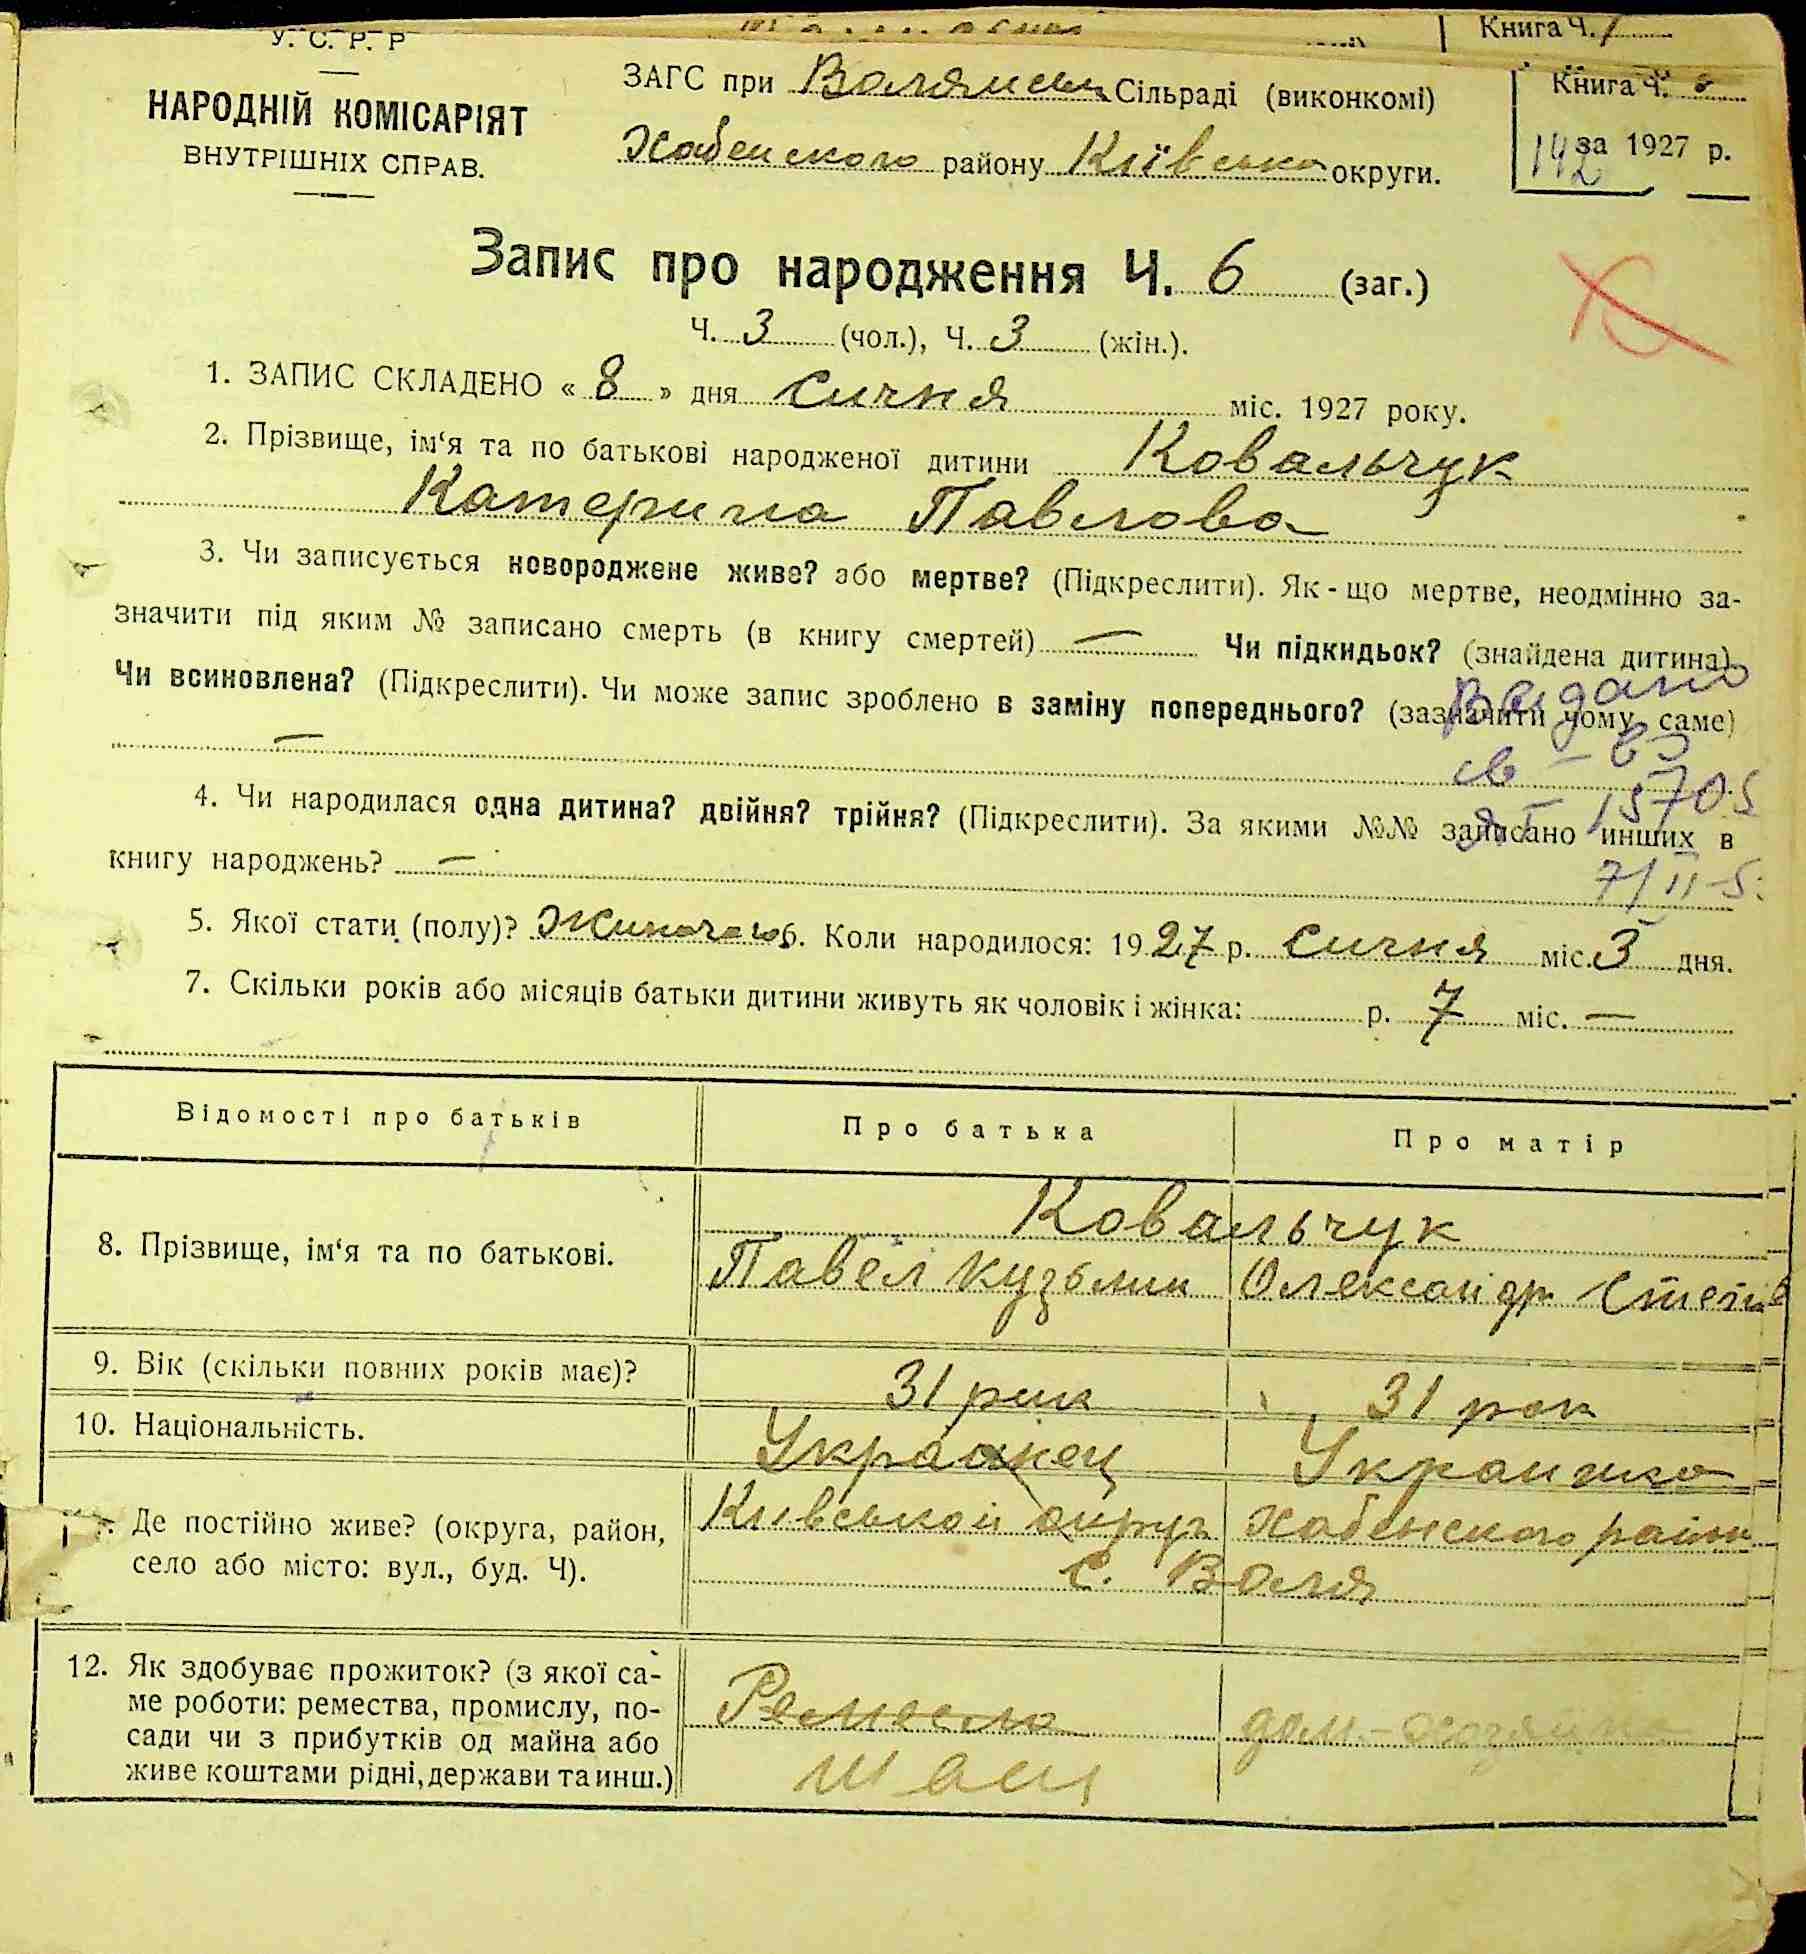 Книга Ч. 1
У. С. Р. Р
НАРОДНІЙ КОМІСАРІЯТ
ВНУТРІШНІХ СПРАВ.
ЗАГС при Сільраді (виконкомі)
Хабенского району Київсько округи.
Книга Ч.
142 за 1927 р.
Запис про народження Ч. 6 (заг.)
Ч. 3 (чол.), Ч. 3 (жін.).
1. ЗАПИС СКЛАДЕНО « 8 » дня сичня міс. 1927 року.
2. Прізвище, ім‘я та по батькові народженої дитини Ковальчук
Катерина Павлова
3. Чи записується новороджене живе? або мертве? (Підкреслити). Як - що мертве, неодмінно за-
значити під яким № записано смерть (в книгу смертей) — Чи підкидьок? (знайдена дитина).
Чи всиновлена? (Підкреслити). Чи може запис зроблено в заміну попереднього? (зазначити чому саме)
—
Видано
15705
4. Чи народилася одна дитина? двійня? трійня? (Підкреслити). За якими №№ записано инших в
книгу народжень? —
7/II
5. Якої стати (полу)? 6. Коли народилося: 1927 р. сичня міс. 3 дня.
7. Скільки років або місяців батьки дитини живуть як чоловік і жінка: р. 7 міс. —
Відомості про батьків Про батька Про матір
8. Прізвище, ім‘я та по батькові. Ковальчук
Павел Кузьмин Олександр Степ
9. Вік (скільки повних років має)? 31 рик 31 рок
10. Національність. Украинец Украинка
Де постійно живе? (округа, район,
село або місто: вул., буд. Ч).
Киівськой округ Хабенского район
с. Воля
12. Як здобуває прожиток? (з якої са-
ме роботи: ремества, промислу, по-
сади чи з прибутків од майна або
живе коштами рідні, держави та инш.)
Ремесло дом.-хозяйка
швец